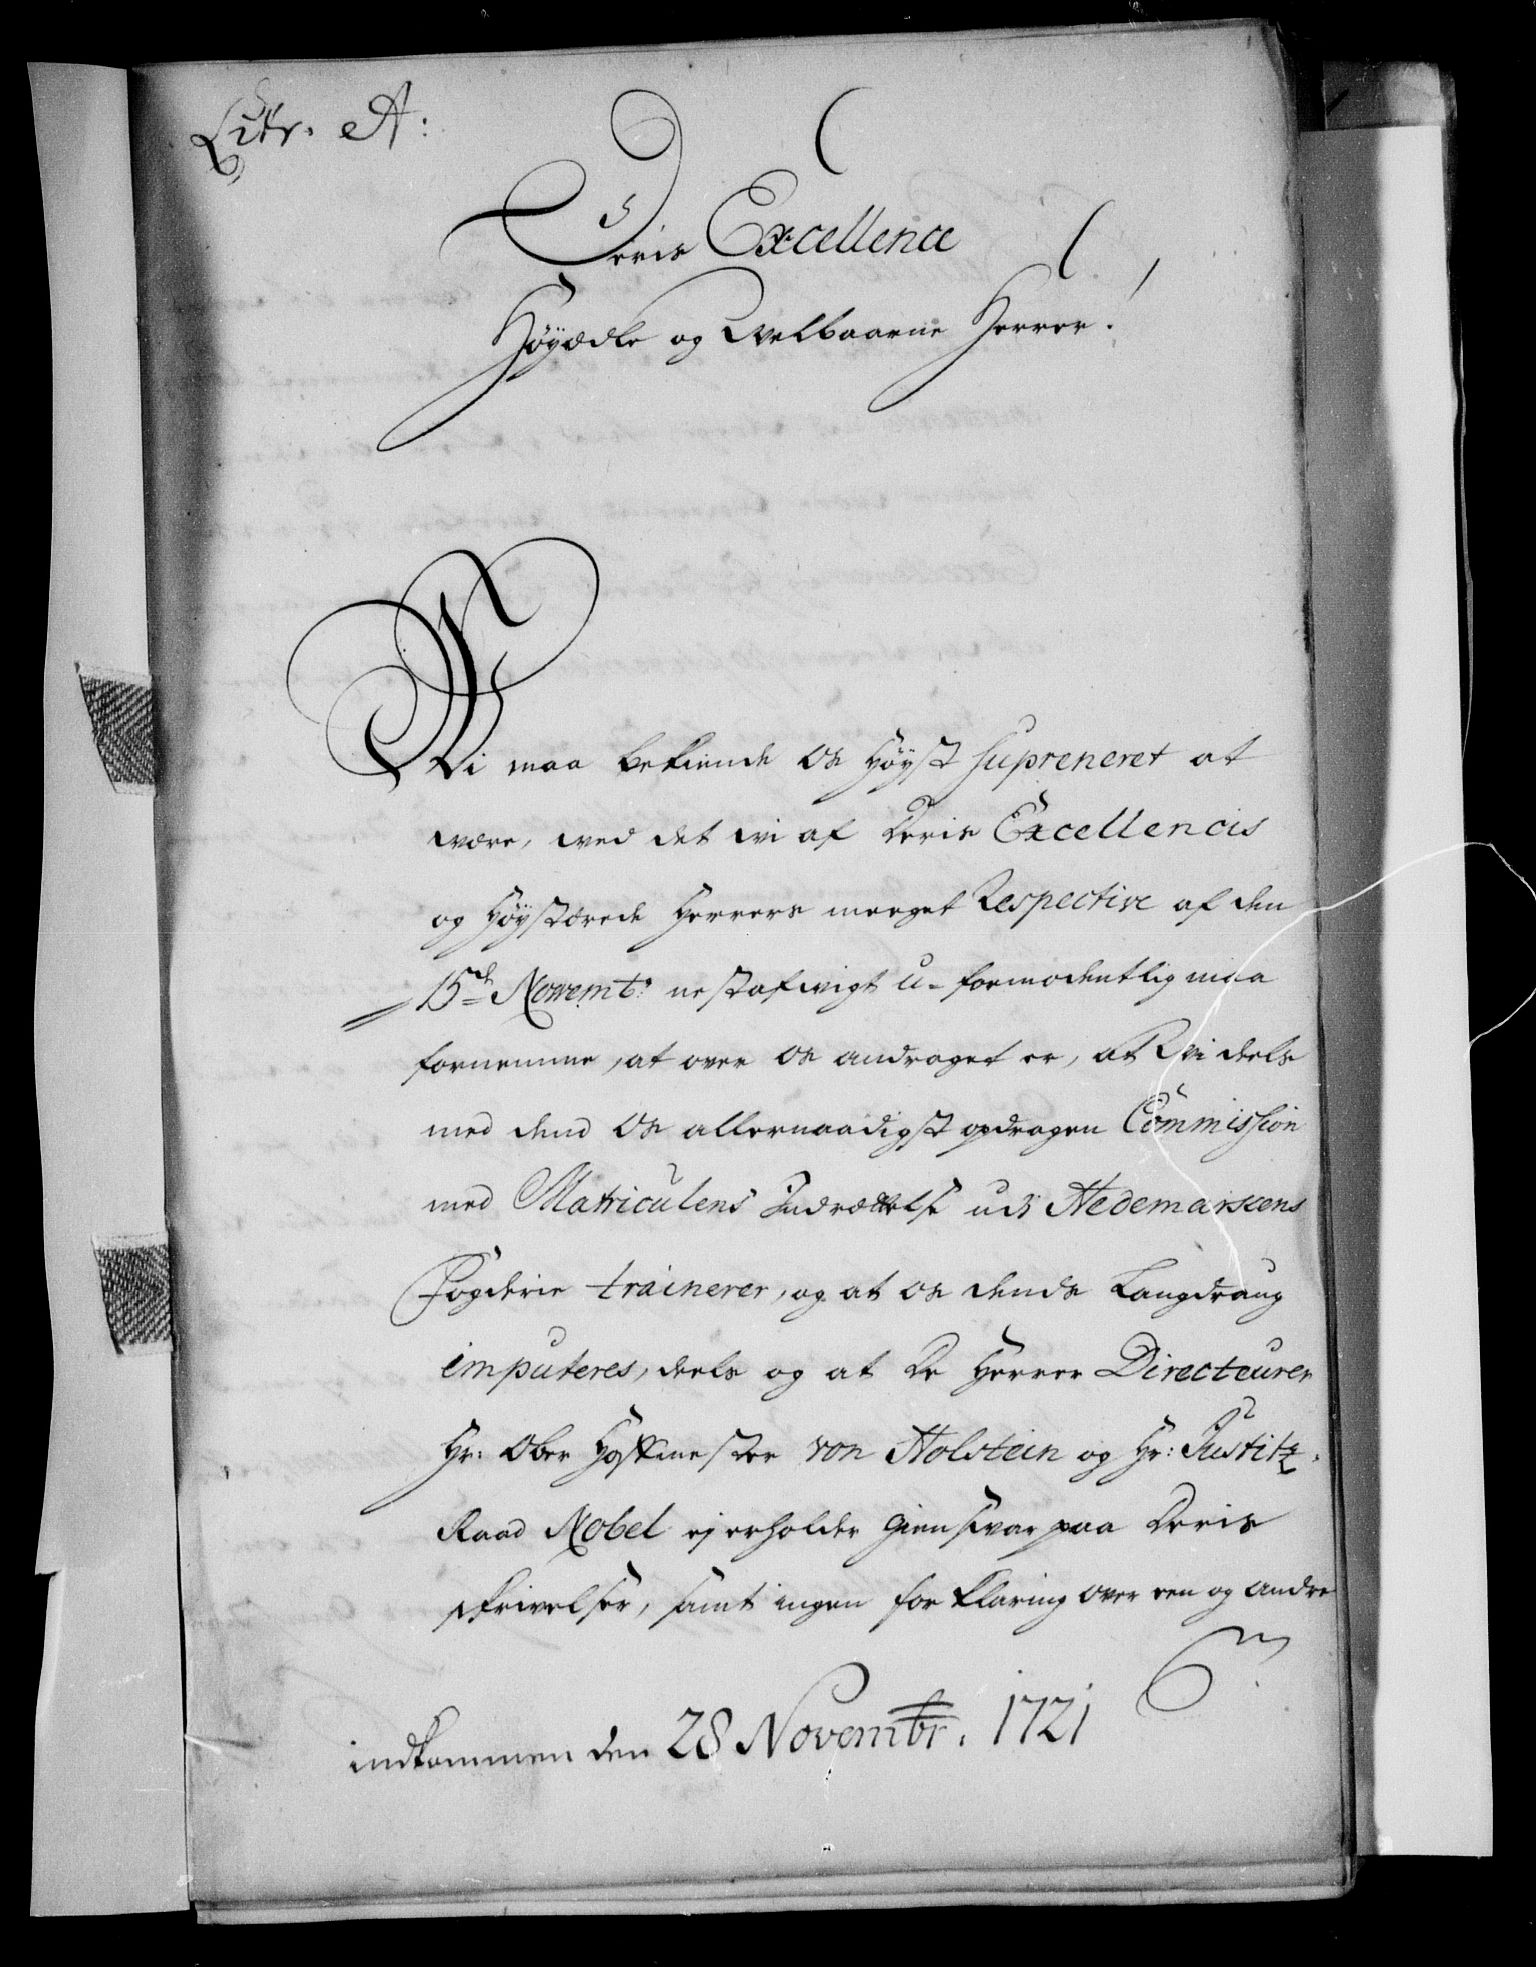 Litr. A:
Deris Excellence
Höyædle og Welbaarne Herrer!
Wi maa bekiende os Höyst supreneret at
være, wed det wi af Deris Excellencis
og Höystærede Herrers meeget Respective af den
15de Novembr: nestafvigt u-formodentlig maa
fornemme, at over os andraget er, at Wi deels
med dend os allernaadigst opdragen Commission
med Matriculens Indrættelse udj Hedemarkens
Fogderie trainerer, og at os dends Langdraug
imputeres, deels og at De Herrer Directeurer
Hr: Ober Hoffmester von Holstein og Hr: Justitz-
Raad Nobel ej erholder Giensvar paa Deris
skrivelser, samt ingen forklaring over een og andre
indkommen den 28 Novembr. 1721